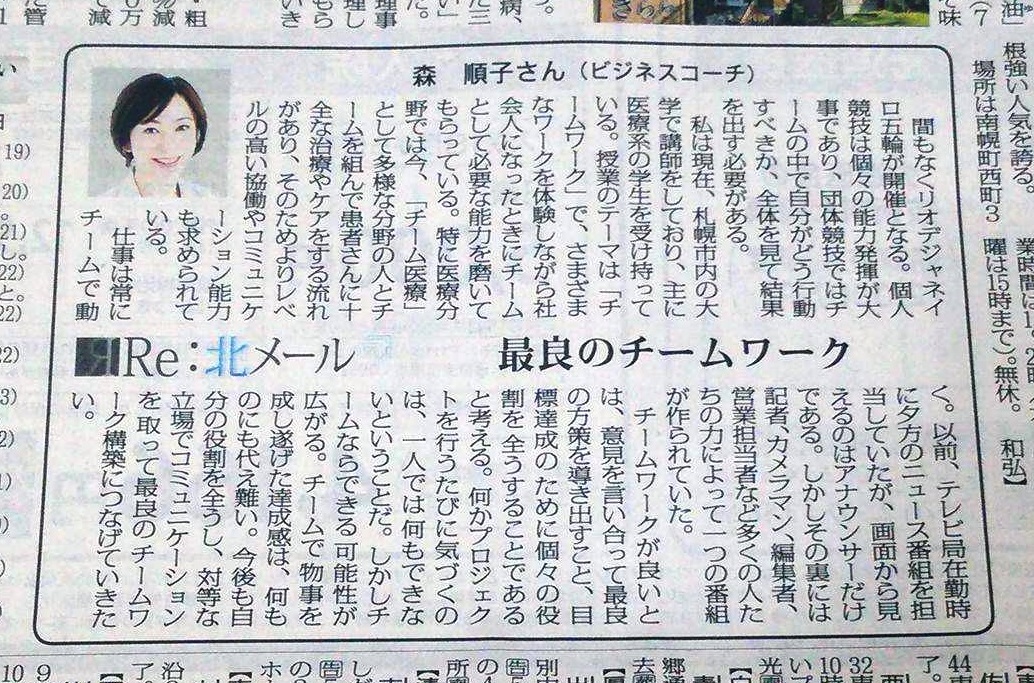 森 順子さん（ビジネスコーチ）
間もなくリオデジャネイ
ロ五輪が開催となる。個人
競技は個々の能力発揮が大
事であり、団体競技ではチ
ームの中で自分がどう行動
すべきか、全体を見て結果
を出す必要がある。
私は現在、札幌市内の大
学で講師をしており、主に
医療系の学生を受け持って
いる。授業のテーマは「チ
ームワーク」で、さまざま
なワークを体験しながら社
会人になったときにチーム
として必要な能力を磨いて
もらっている。特に医療分
野では今、「チーム医療」
として多様な分野の人とチ
ームを組んで患者さんに十
全な治療やケアをする流れ
があり、そのためよりレベ
ルの高い協働やコミュニケ
ーション能力
も求められて
いる。
仕事は常に
チームで動
■Re：北メール
最良のチームワーク
く。以前、テレビ局在勤時
に夕方のニュース番組を担
当していたが、画面から見
えるのはアナウンサーだけ
である。しかしその裏には
記者、カメラマン、編集者、
営業担当者など多くの人た
ちの力によって一つの番組
が作られていた。
チームワークが良いと
は、意見を言い合って最良
の方策を導き出すこと、目
標達成のために個々の役
割を全うすることである
と考える。何かプロジェク
トを行うたびに気づくの
は、一人では何もできな
いということだ。しかしチ
ームならできる可能性が
広がる。チームで物事を
成し遂げた達成感は、何も
のにも代え難い。今後も自
分の役割を全うし、対等な
立場でコミュニケーション
を取って最良のチームワ
ーク構築につなげていきた
い。
根強い人気を誇る。
場所は南幌町西町3
曜は15時まで)。無休。
和弘】